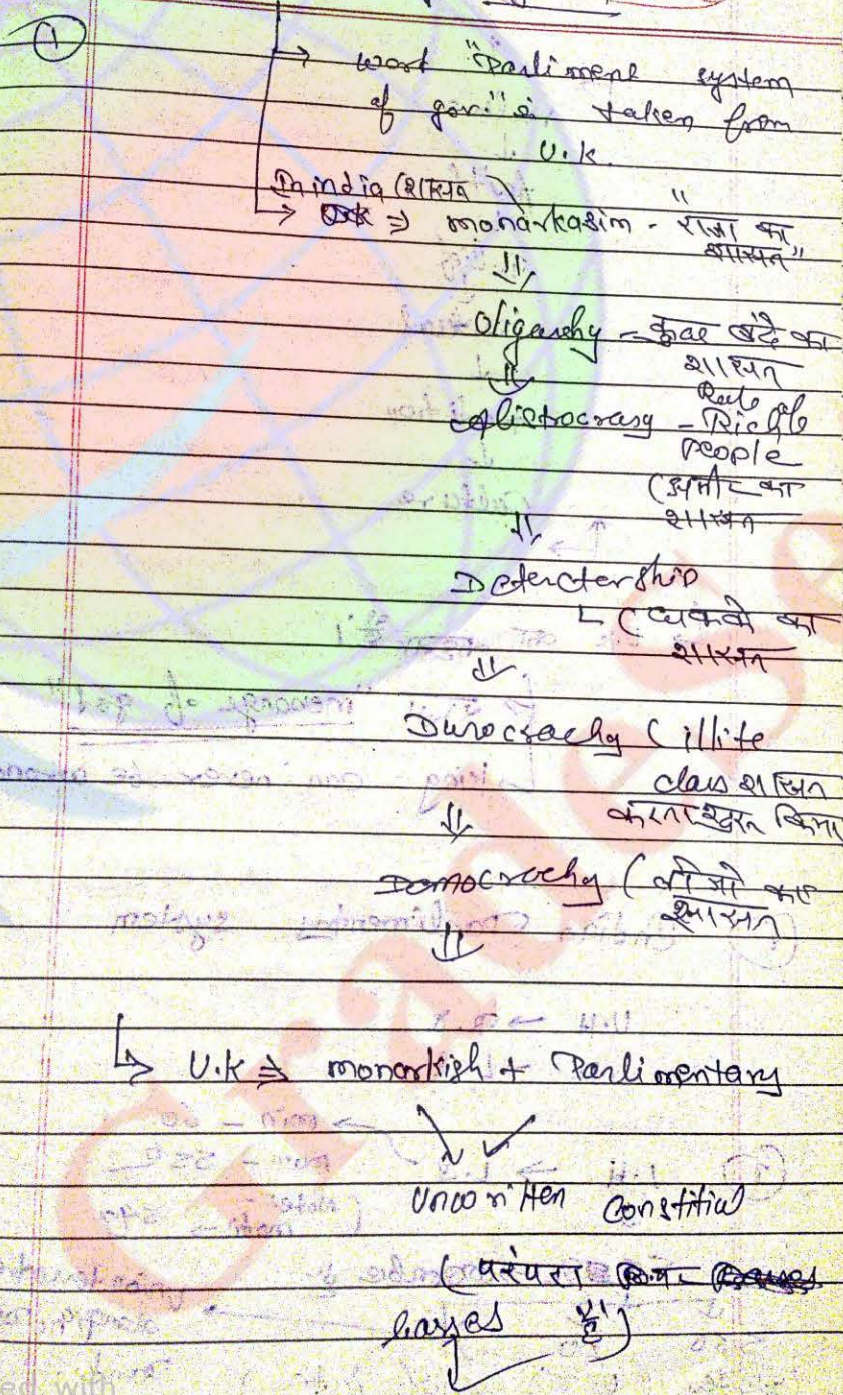 ①
→ word "Parliment system
of gov." is taken from
U.K.
In india (शासन
→ ⇒ monarkasim - "राजा का
शासन"
⇓
Oligarchy - कुछ बंदे का
शासन
⇓
Alistrocrasy - Rule of
Rich
People
(अमीर का
शासन
⇓
Deterctership
(व्यक्ती का
शासन
⇓
Durocrachy (illite
class शासन
करना शुरू किया
⇓
Democrochy (लोगो का
शासन
⇓
→ U.K ⇒ monorkish + Parlimentary
Unwritten Constitiu
(परंपरा
basses है)